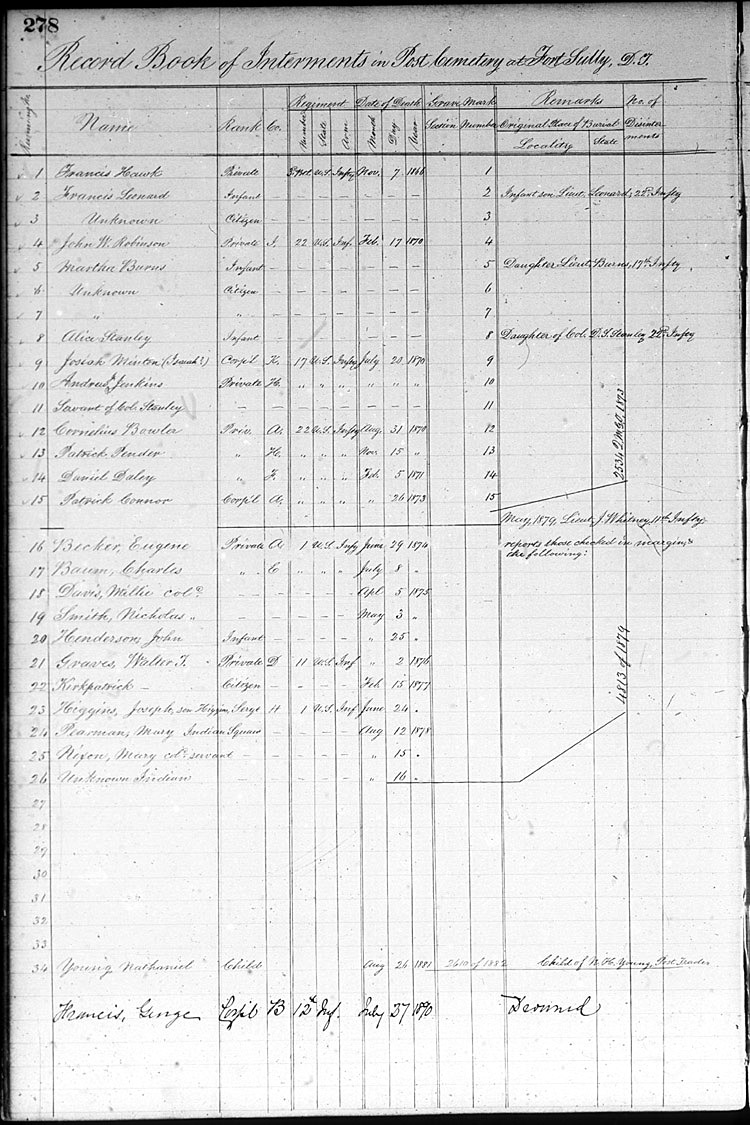 278
Record Book of Interments in Post Cemetery at Fort Sully, D.T.
Name Rank Co. Regiment Date of Death Grave Mark Remarks No. of Disinterments
Number State Arm Month Day Year Section Number Original Place of Burial
Locality State
1 Francis Hawk Private U.S. Infty Nov. 7 1866 1
2 Francis Leonard Infant — — — — — — — 2 Infant son Lieut. Leonard, 22d Infty
3 Unknown Citizen — — — — — — — 3
4 John W. Robinson Private I. 22 U.S. Inf. Feb. 17 1870 4
5 Martha Burns Infant — — — — — — — 5 Daughter Lieut. Burns, 17th Infty
6 Unknown Citizen — — — — — — — 6
7 " " — — — — — — — 7
8 Alice Stanley Infant — — — — — — — 8 Daughter of Col. D. S. Stanley 22d Infty
9 Josiah Minton (Isaiah?) Corpl K. 17 U.S. Infty July 20 1870 9
10 Andrew Jenkins Private H. " " " " " " 10
11 Servant of Col. Stanley — — — — — — — — 11
12 Cornelius Bowler Priv. A. 22 U.S. Infty Aug. 31 1870 12
13 Patrick Pender " H. " " " Nov. 15 " 13
14 Daniel Daley " F. " " " Feb. 5 1871 14
15 Patrick Connor Corpl A. " " " " 26 1873 15
2534 2 M.G.O. 1873
May, 1879, Lieut. J. Whitney 11th Infty,
reports those checked in margin, &
the following:
16 Becker, Eugene Private A. 1 U.S. Infy June 29 1874
17 Baum, Charles " C " " " July 8 "
18 Davis, Millie cold — — — — — Apl 5 1875
19 Smith, Nicholas " — — — — — May 3 "
20 Henderson, John Infant — — — — " 25 "
21 Graves, Walter T. Private D 11 U.S. Inf " 2 1876
22 Kirkpatrick — Citizen — — — — Feb 15 1877
23 Higgins, Joseph, son Higgins, Sergt H 1 U.S. Inf June 24 "
24 Pearman, Mary Indian Squaw — — — Aug 12 1878
25 Nixon, Mary cold servant — — — — " 15 "
26 Unknown Indian — — — — — " 16 "
4813 of 1879
27
28
29
30
31
32
33
34 Young Nathaniel Child Aug 26 1881 2610 of 1882 Child of N. H. Young, Post Trader
Francis, George Corpl B 12th Inf. July 27 1890 Drowned